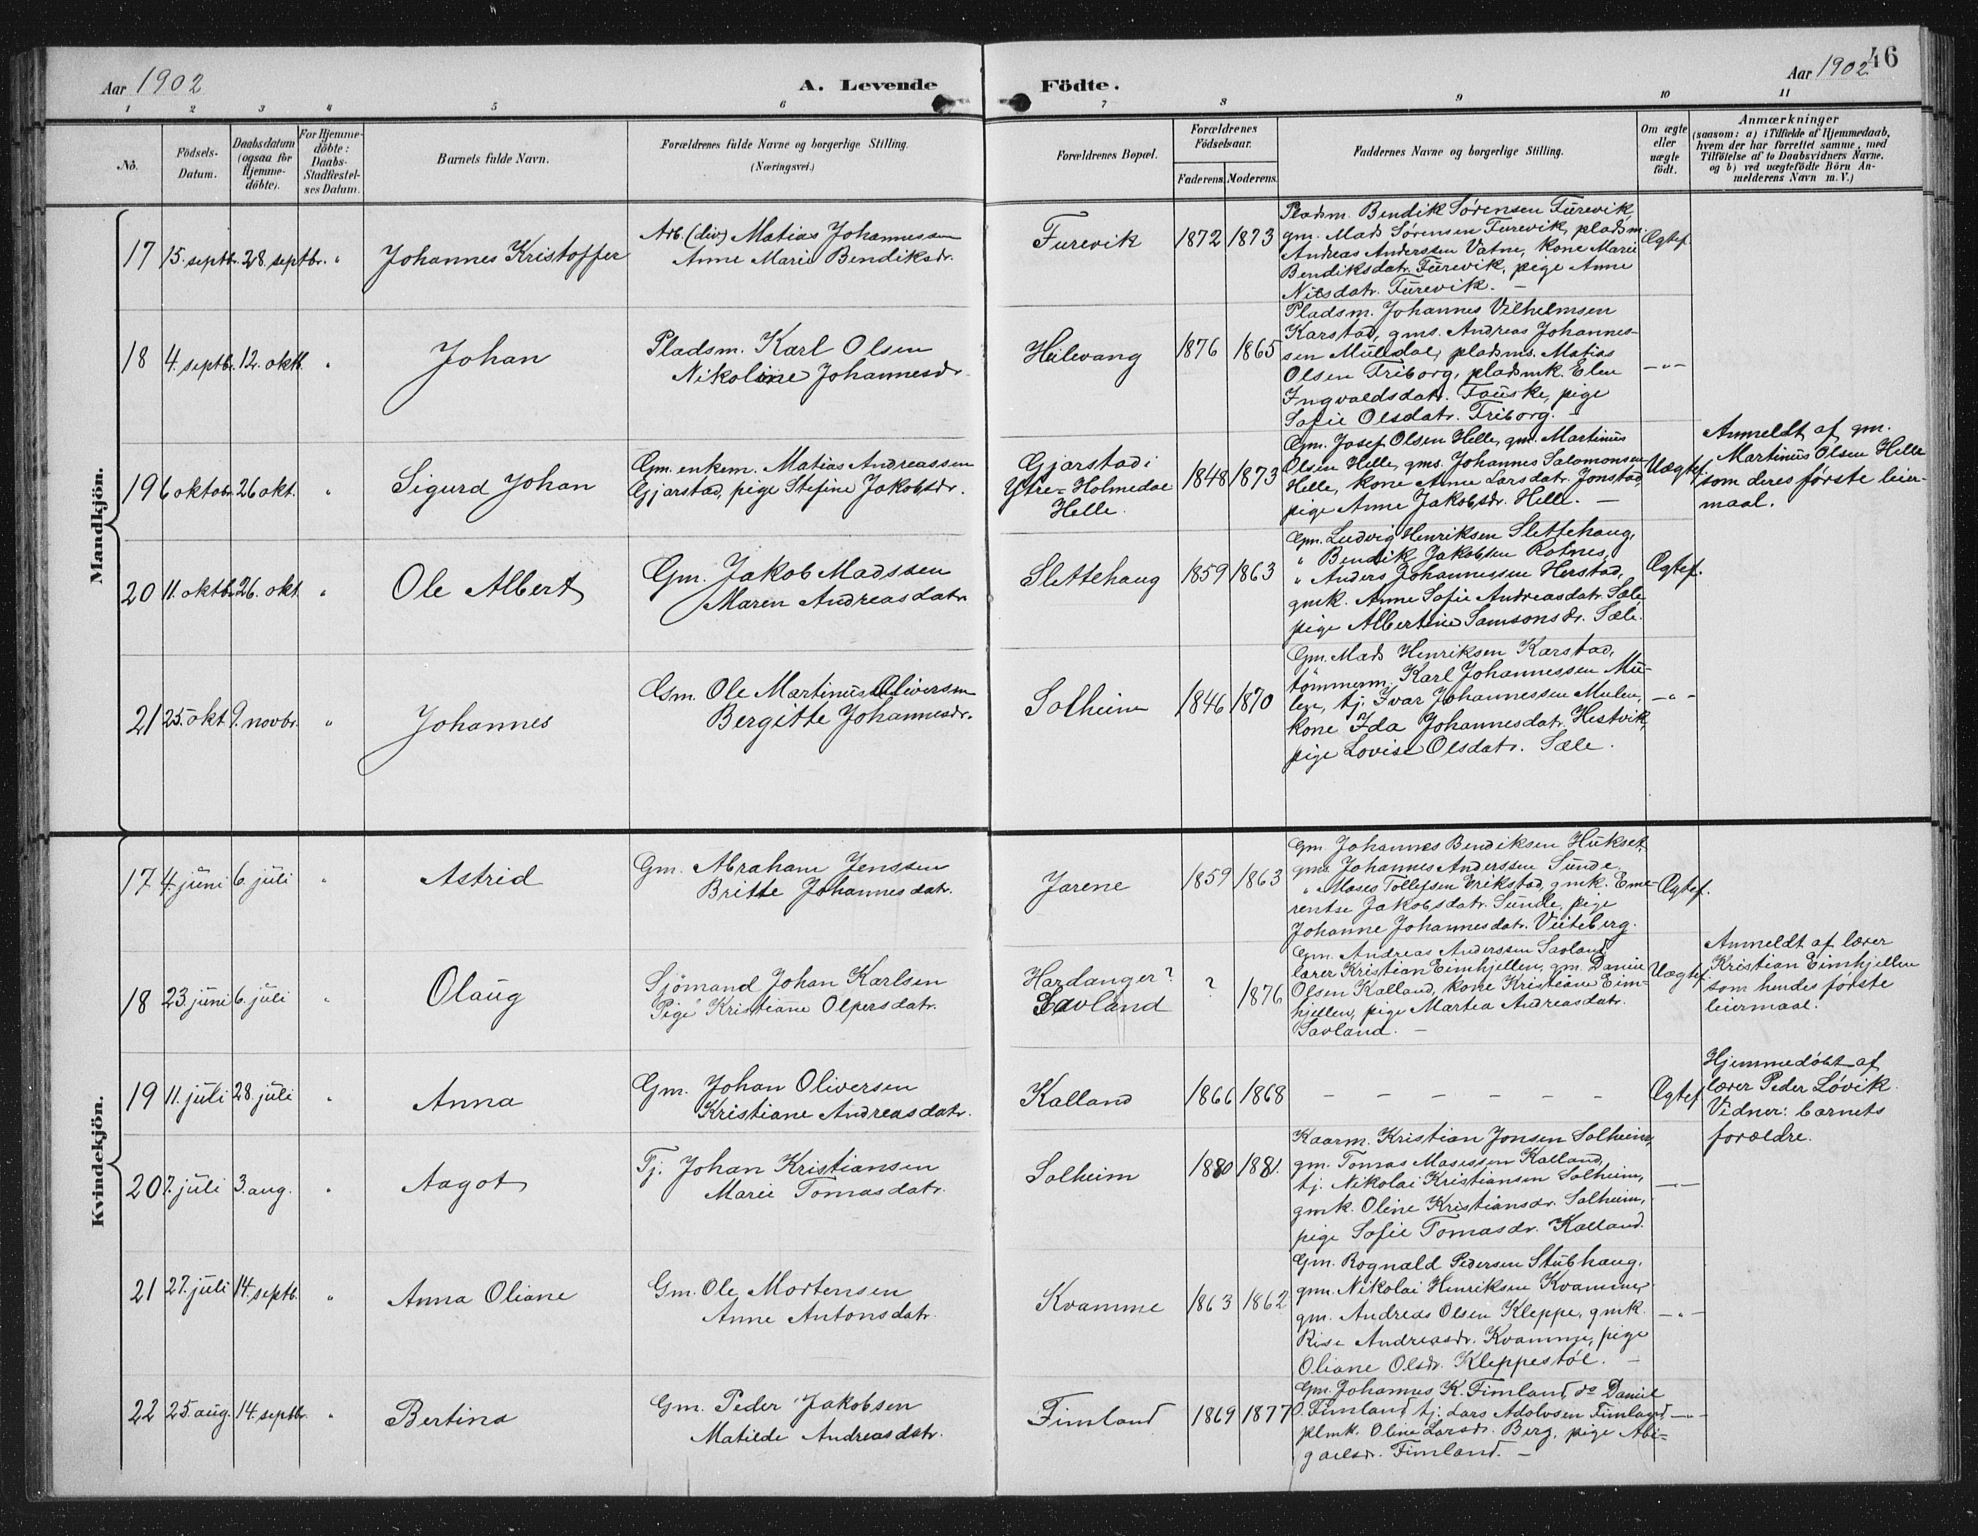 Aar 1902
A. Levende Födte.
Aar 1902
46
1 2 3 4 5 6 7 8 9 10 11
No.
Födsels-
Datum.
Daabsdatum
(ogsaa for
Hjemme-
döbte).
For Hjemme-
döbte:
Daabs-
Stadfæstel-
ses Datum.
Barnets fulde Navn.
Forældrenes fulde Navne og borgerlige Stilling.
(Næringsvei.)
Forældrenes Bopæl.
Forældrenes
Födselsaar.
Faderens. Moderens.
Faddernes Navne og borgerlige Stilling.
Om ægte
eller
uægte
födt.
Anmærkninger
(saasom: a) i Tilfælde af Hjemmedaab,
hvem der har forrettet samme, med
Tilföielse af to Daabsvidners Navne,
og b) ved uægtefödte Börn An-
melderens Navn m. V.)
Mandkjön.
17 15. septb. 28. septbr. " Johannes Kristoffer
Arb. (div) Matias Johannessen
Anne Marie Bendiksdr.
Furevik 1872 1873
Pladsm. Bendik Sørensen Furevik,
gm. Mads Sørensen Furevik, pladsm.
Andreas Anderssen Vatne, kone Marie
Bendiksdatr. Furevik, pige Anne
Nilsdatr. Furevik. —
Ægtef.
18 4. septbr. 12. oktb. " Johan
Pladsm. Karl Olsen
Nikoline Johannesdr.
Heilevang 1876 1865
Pladsm. Johannes Vilhelmsen
Karstad, gms. Andreas Johannes-
sen Muledal, pladsms. Matias
Olsen Friborg, pladsmk. Elen
Ingvaldsdatr. Fauske, pige
Sofie Olsdatr. Friborg. —
— " —
19 6 oktobr. 26 okt. " Sigurd Johan
Gm. enkem. Matias Andreassen
Gjarstad, pige Stefine Jakobsdr.
Gjarstad i
Ytre-Holmedal
Helle.
1848 1873
Gm. Josef Olsen Helle, gm. Martinus
Olsen Helle, gms. Johannes Salomonsen
Helle, kone Anne Larsdatr. Jonstad,
pige Anne Jakobsdr. Helle. —
Uægtef.
Anmeldt af gm.
Martinus Olsen Helle
som deres første leier-
maal.
20 11. oktbr. 26. okt. " Ole Albert
Gm. Jakob Madssen
Maren Andreasdatr.
Slettehaug 1859 1863
Gm. Ludvig Henriksen Slettehaug,
" Bendik Jakobsen Rotnes,
" Anders Johannessen Herstad,
gmk. Anne Sofie Andreasdatr. Sæle
pige Albertine Samsonsdr. Sæle.
Ægtef.
21 25. okt. 9. novbr. " Johannes
Gm. Ole Martinus Oliversen
Bergitte Johannesdr.
Solheim 1846 1870
Gm. Mads Henriksen Karstad,
tömmerm. Karl Johannessen Mu-
len, tj. Ivar Johannessen Mulen,
kone Ida Johannesdatr. Hestvik,
pige Lovise Olsdatr. Sæle.
— " —
Kvindekjön.
17 4. juni 6. juli " Astrid
Gm. Abraham Jenssen
Britte Johannesdatr.
Jarene 1859 1863
Gm. Johannes Bendiksen Hukset,
gms. Johannes Anderssen Sunde,
" Moses Tollefsen Erikstad, gmk. Eme-
rentse Jakobsdatr. Sunde, pige
Johanne Johannesdatr. Viteberg.
Ægtef.
18 23. juni 6. juli " Olaug
Sjömand Johan Karlsen
Pige Kristiane Olpersdatr.
Hardanger?
Savland
? 1876
Gm. Andreas Anderssen Savland,
lærer Kristian Eimhjellen, gm. Daniel
Olsen Kalland, kone Kristiane Eim-
hjellen, pige Martea Andreasdatr.
Savland. —
Uægtef.
Anmeldt af lærer
Kristian Eimhjellen
som hendes første
leiermaal.
19 11. juli 28. juli " Anna
Gm. Johan Oliversen
Kristiane Andreasdatr.
Kalland 1866 1868
— — — — — — —
Ægtef.
Hjemmedöbt af
lærer Peder Løvik.
Vidner: barnets
forældre.
20 7. juli 3. aug. " Aagot
Tj. Johan Kristiansen
Marie Tomasdatr.
Solheim 1880 1881.
Kaarm. Kristian Jonsen Solheim,
gm. Tomas Masessen Kalland,
tj. Nikolai Kristiansen Solheim,
gmk. Oline Kristiansdr. Solheim,
pige Sofie Tomasdr. Kalland.
— " —
21 27. juli 14. septb. " Anna Oliane
Gm. Ole Mortensen
Anne Antonsdatr.
Kvamme 1863 1862
Gm. Rognald Pedersen Stubhaug,
gm. Nikolai Henriksen Kvamme,
gm. Andreas Olsen Kleppe, gmk.
Rise Andreasdr. Kvamme, pige
Oliane Olsdr. Kleppestöl. —
— " —
22 25. aug. 14. septbr. " Bertina
Gm. Peder Jakobsen
Matilde Andreasdatr.
Fimland 1869 1877
Gm. Johannes K. Fimland, do Daniel
O. Fimland, tj. Lars Adolvsen Fimland,
plmk. Oline Larsdr. Berg, pige Abi-
gaelsdr. Fimland. —
— " —